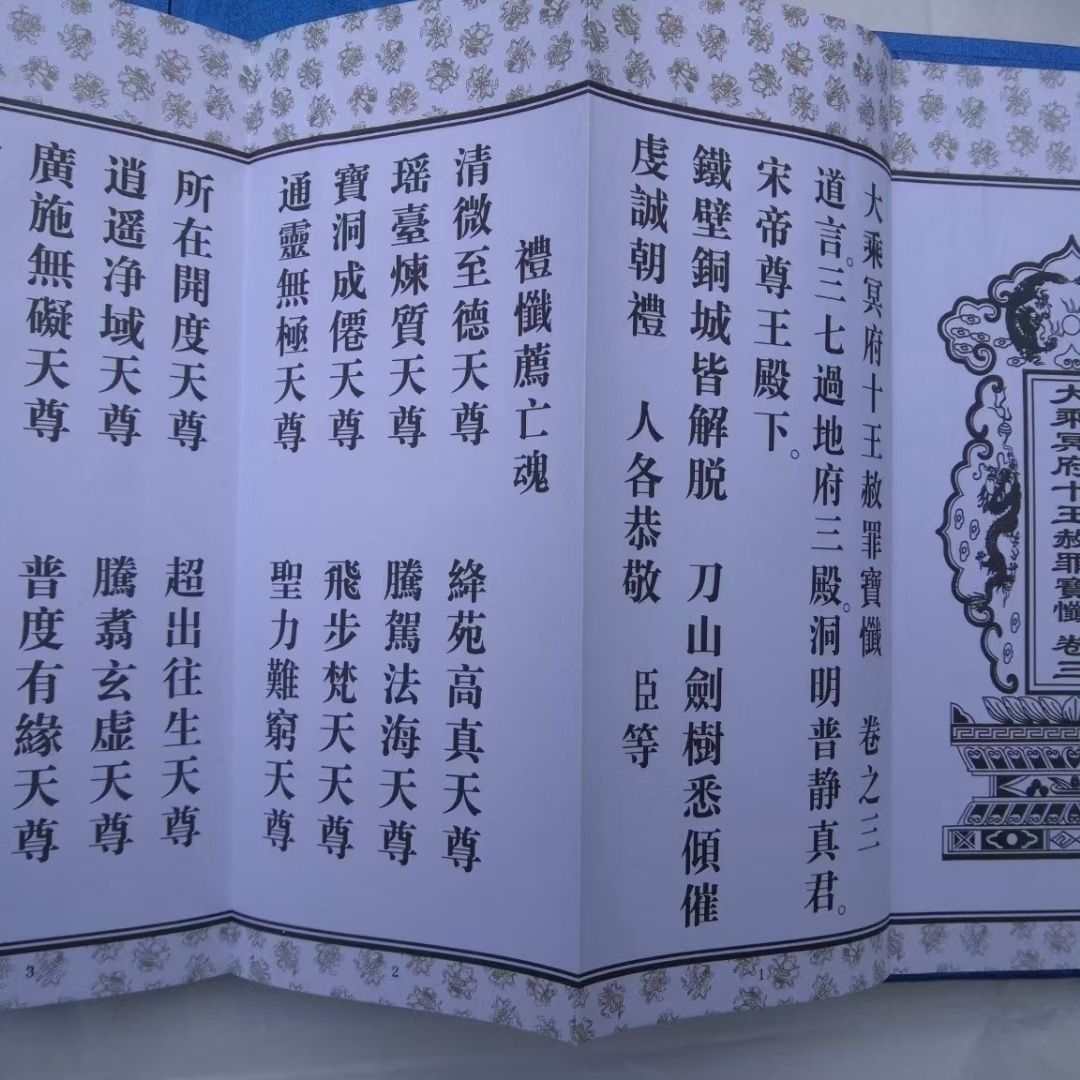 大乘冥府十王赦罪寶懺 卷三
大乘冥府十王赦罪寶懺 卷之三
道言。三七過地府三殿。洞明普静真君。
宋帝尊王殿下。
鐵壁銅城皆解脱 刀山劍樹悉傾催
虔誠朝禮 人各恭敬 臣等
1
禮懺薦亡魂
清微至德天尊 絳苑高真天尊
瑶臺煉質天尊 騰駕法海天尊
寶洞成僊天尊 飛步梵天天尊
通靈無極天尊 聖力難窮天尊
2
所在開度天尊 超出往生天尊
逍遥净域天尊 騰翥玄虚天尊
廣施無礙天尊 普度有緣天尊
3